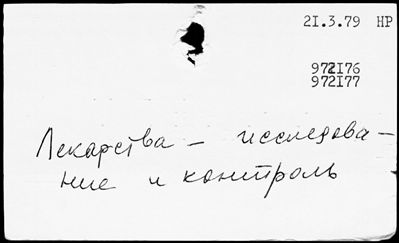 2I.3.79 НР
972I76
972I77
Лекарства – исследова-
ние и контроль